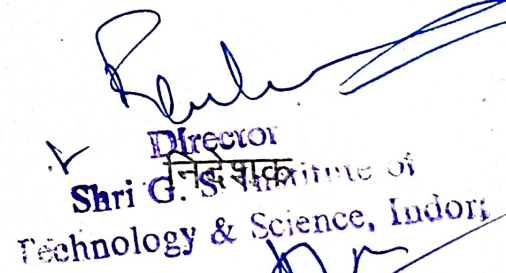 Director
निदेशक
Shri G. S. Institute of
Technology & Science, Indore